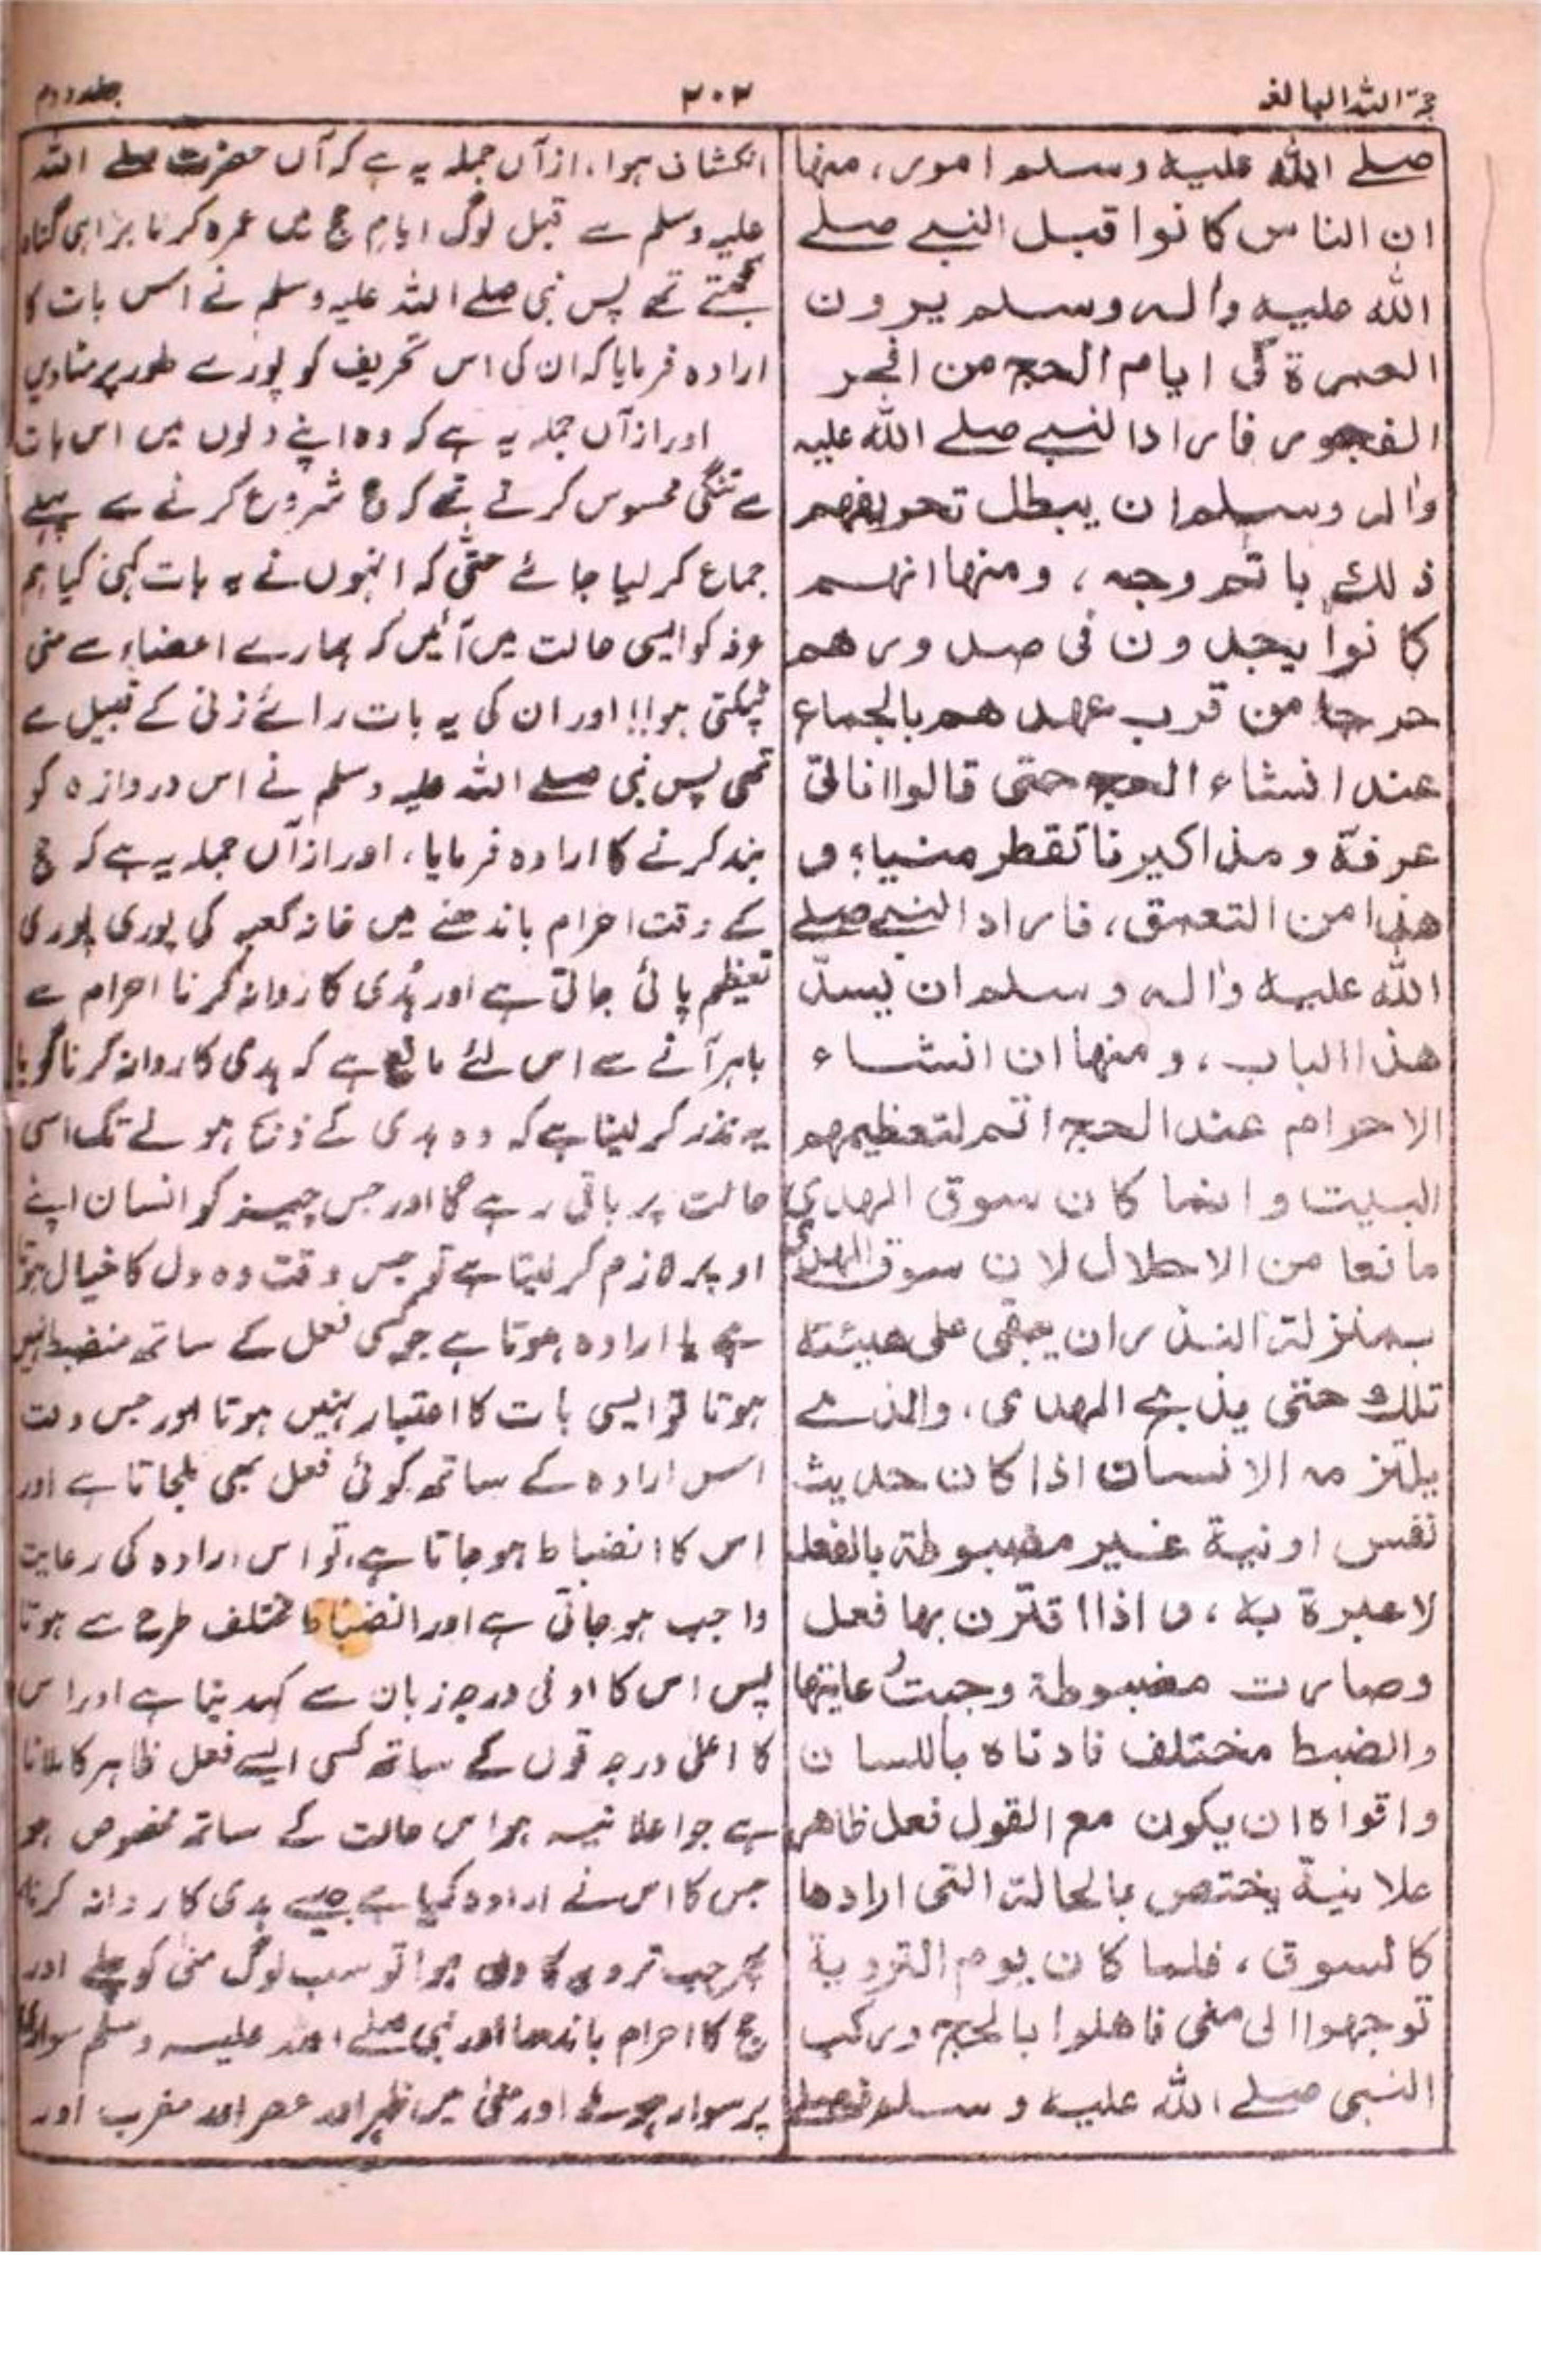 حجۃ اللہ البالغہ
۲۰۲
جلد دوم
صلے اللہ علیہ وسلم امور، منھا
ان الناس کانوا قبل النبے صلے
اللہ علیہ واٰلہ وسلم یرون
العمرۃ فی ایام الحج من افجر
الفجور فاراد النبے صلے اللہ علیہ
واٰلہ وسلم ان یبطل تحریفھم
ذلک باتم وجہ، ومنھا انھم
کانوا یجدون فی صدورھم
حرجا من قرب عھدھم بالجماع
عند انشاء الحج حتی قالوا انأتی
عرفۃ ومذاکیرنا تقطر منیا؛ و
ھذا من التعمق، فاراد النبے صلے
اللہ علیہ واٰلہ وسلم ان یسدّ
ھذا الباب، ومنھا ان انشاء
الاحرام عند الحج اتم لتعظیمھم
البیت وانما کان سوق الھدی
مانعا من الاحلال لان سوق الھدی
بمنزلۃ النذر ان یبقی علی ھیئتہ
تلک حتی یذبح الھدی، والذے
یلتزمہ الانسان اذا کان حدیث
نفس او نیۃ غیر مضبوطۃ بالفعل
لا عبرۃ بہ، و اذا اقترن بھا فعل
وصارت مضبوطۃ وجبت رعایتھا
والضبط مختلف فادناہ باللسان
واقواہ ان یکون مع القول فعل ظاھر
علانیۃ یختص بالحالۃ التی ارادھا
کالسوق، فلما کان یوم الترویۃ
توجھوا الی منی فاھلوا بالحج ورکب
النبی صلے اللہ علیہ وسلم فصلے
انکشاف ہوا، ازآں جملہ یہ ہے کہ آں حضرت صلے اللہ
علیہ وسلم سے قبل لوگ ایام حج میں عمرہ کرنا بڑا ہی گناہ
سمجھتے تھے پس نبی صلے اللہ علیہ وسلم نے اس بات کا
ارادہ فرمایا کہ ان کی اس تحریف کو پورے طور پر مٹادیں
اور ازآں جملہ یہ ہے کہ وہ اپنے دلوں میں اس بات
سے تنگی محسوس کرتے تھے کہ حج شروع کرنے سے پہلے
جماع کرلیا جائے حتّٰی کہ انہوں نے یہ بات کہی کیا ہم
عرفہ کو ایسی حالت میں آئیں کہ ہمارے اعضاء سے منی
ٹپکتی ہو!! اور ان کی یہ بات رائے زنی کے قبیل سے
تھی پس نبی صلے اللہ علیہ وسلم نے اس دروازہ کو
بند کرنے کا ارادہ فرمایا، اور ازآں جملہ یہ ہے کہ حج
کے وقت احرام باندھنے میں خانہ کعبہ کی پوری پوری
تعظیم پائی جاتی ہے اور ہَدی کا روانہ کرنا احرام سے
باہر آنے سے اس لئے مانع ہے کہ ہدی کا روانہ کرنا گویا
یہ نذر کر لینا ہے کہ وہ ہدی کے ذبح ہونے تک اسی
حالت پر باقی رہے گا اور جس چیز کو انسان اپنے
اوپر لازم کرلیتا ہے تو جس وقت وہ دل کا خیال ہوتا
ہے یا ارادہ ہوتا ہے جو کسی فعل کے ساتھ منضبط نہیں
ہوتا تو ایسی بات کا اعتبار نہیں ہوتا اور جس وقت
اس ارادہ کے ساتھ کوئی فعل بھی ملجاتا ہے اور
اس کا انضباط ہو جاتا ہے، تو اس ارادہ کی رعایت
واجب ہو جاتی ہے اور انضباط مختلف طرح سے ہوتا
پس اس کا ادنی درجہ زبان سے کہدینا ہے اور اس
کا اعلیٰ درجہ قول کے ساتھ کسی ایسے فعل ظاہر کا ملانا
ہے جو اعلانیہ ہو اس حالت کے ساتھ مخصوص ہو
جس کا اس نے ارادہ کیا ہے جیسے ہدی کا روانہ کرنا
پھر جب ترویہ کا دن ہوا تو سب لوگ منیٰ کو چلے اور
حج کا احرام باندھا اور نبی صلے اللہ علیہ وسلم سواری
پر سوار ہوئے اور منیٰ میں ظہر اور عصر اور مغرب اور